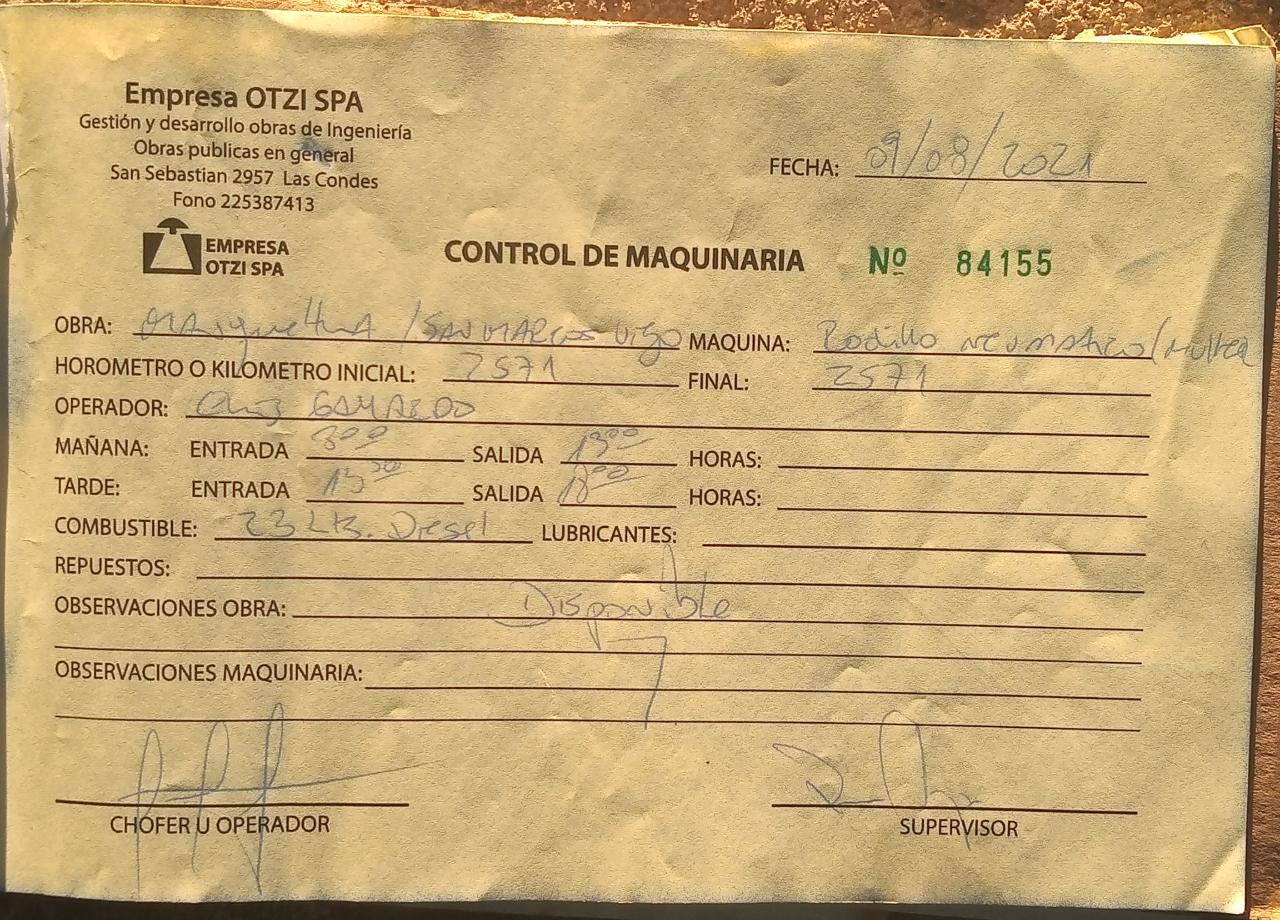 Empresa OTZI SPA
Gestión y desarrollo obras de Ingeniería
Obras publicas en general
San Sebastian 2957 Las Condes
Fono 225387413
FECHA: 09/08/2021
EMPRESA
OTZI SPA
CONTROL DE MAQUINARIA Nº 84155
OBRA: /SAN MARCOS MAQUINA: Rodillo neumatico/
HOROMETRO O KILOMETRO INICIAL: 2571 FINAL: 2571
OPERADOR:
MAÑANA: ENTRADA 800 SALIDA 1300 HORAS:
TARDE: ENTRADA SALIDA 1800 HORAS:
COMBUSTIBLE: 23 Lts. Diesel LUBRICANTES:
REPUESTOS:
OBSERVACIONES OBRA: Disponible
OBSERVACIONES MAQUINARIA:
CHOFER U OPERADOR SUPERVISOR